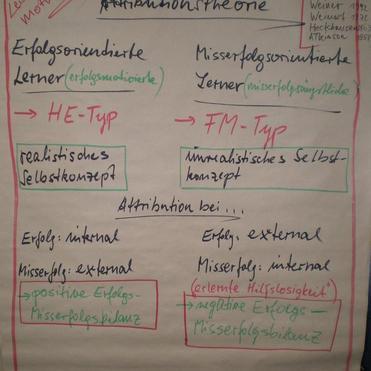 Attributionstheorie
Weiner 1992
Weinert
Heckhausen
Atkinson
Erfolgsorientierte
Lerner (erfolgsmotivierte)
→ HE-Typ
realistisches
Selbstkonzept
Misserfolgsorientierte
Lerner (misserfolgsängstliche)
→ FM-Typ
unrealistisches Selbst-
konzept
Attribution bei...
Erfolg: internal
Misserfolg: external
→ positive Erfolgs-
Misserfolgsbilanz
Erfolg: external
Misserfolg: internal
(erlernte Hilflosigkeit")
→ negative Erfolgs-
Misserfolgsbilanz